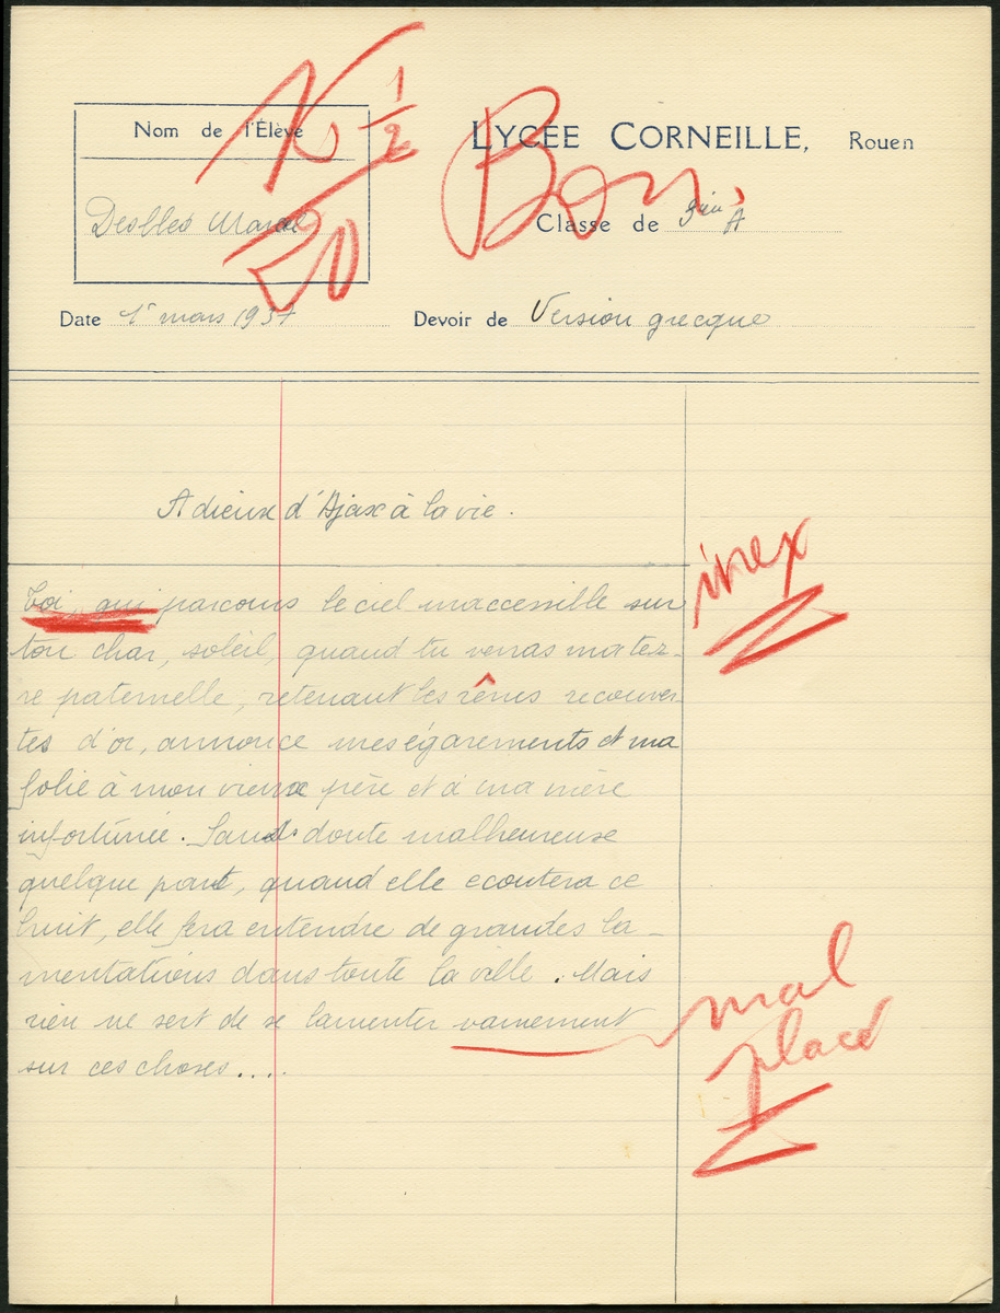 Nom de l'Élève
LYCÉE CORNEILLE, Rouen
1/2
20
Bon
Marcel
Classe de A
Date 1er mars 1937 Devoir de Version grecque
Adieux d'Ajax à la vie.
Toi qui parcours le ciel inaccessible sur
inex
ton char, soleil, quand tu verras ma ter-
re paternelle, retenant les rênes recouver-
tes d'or, annonce mes égarements et ma
folie à mon vieux père et à ma mère
infortunée. Sans doute malheureuse
quelque part, quand elle ecoutera ce
bruit, elle fera entendre de grandes la-
mentations dans toute la ville. Mais
rien ne sert de se lamenter vainement
mal
placé
sur ces choses....